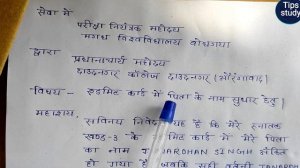 Tips
study
सेवा में
परीक्षा नियंत्रक महोदय
मगध विश्वविद्यालय बोधगया
द्वारा
प्रधानाचार्य महोदय
दाउदनगर कॉलेज दाउदनगर (औरंगाबाद)
विषय - एडमिट कार्ड में पिता के नाम सुधार हेतु।
महाशय,
सविनय निवेदन यह है कि मेरे स्नातक
खण्ड-3 के एडमिट कार्ड में मेरे पिता
का नाम JANARDHAN SINGH अंकित
हो गया है जबकि सही